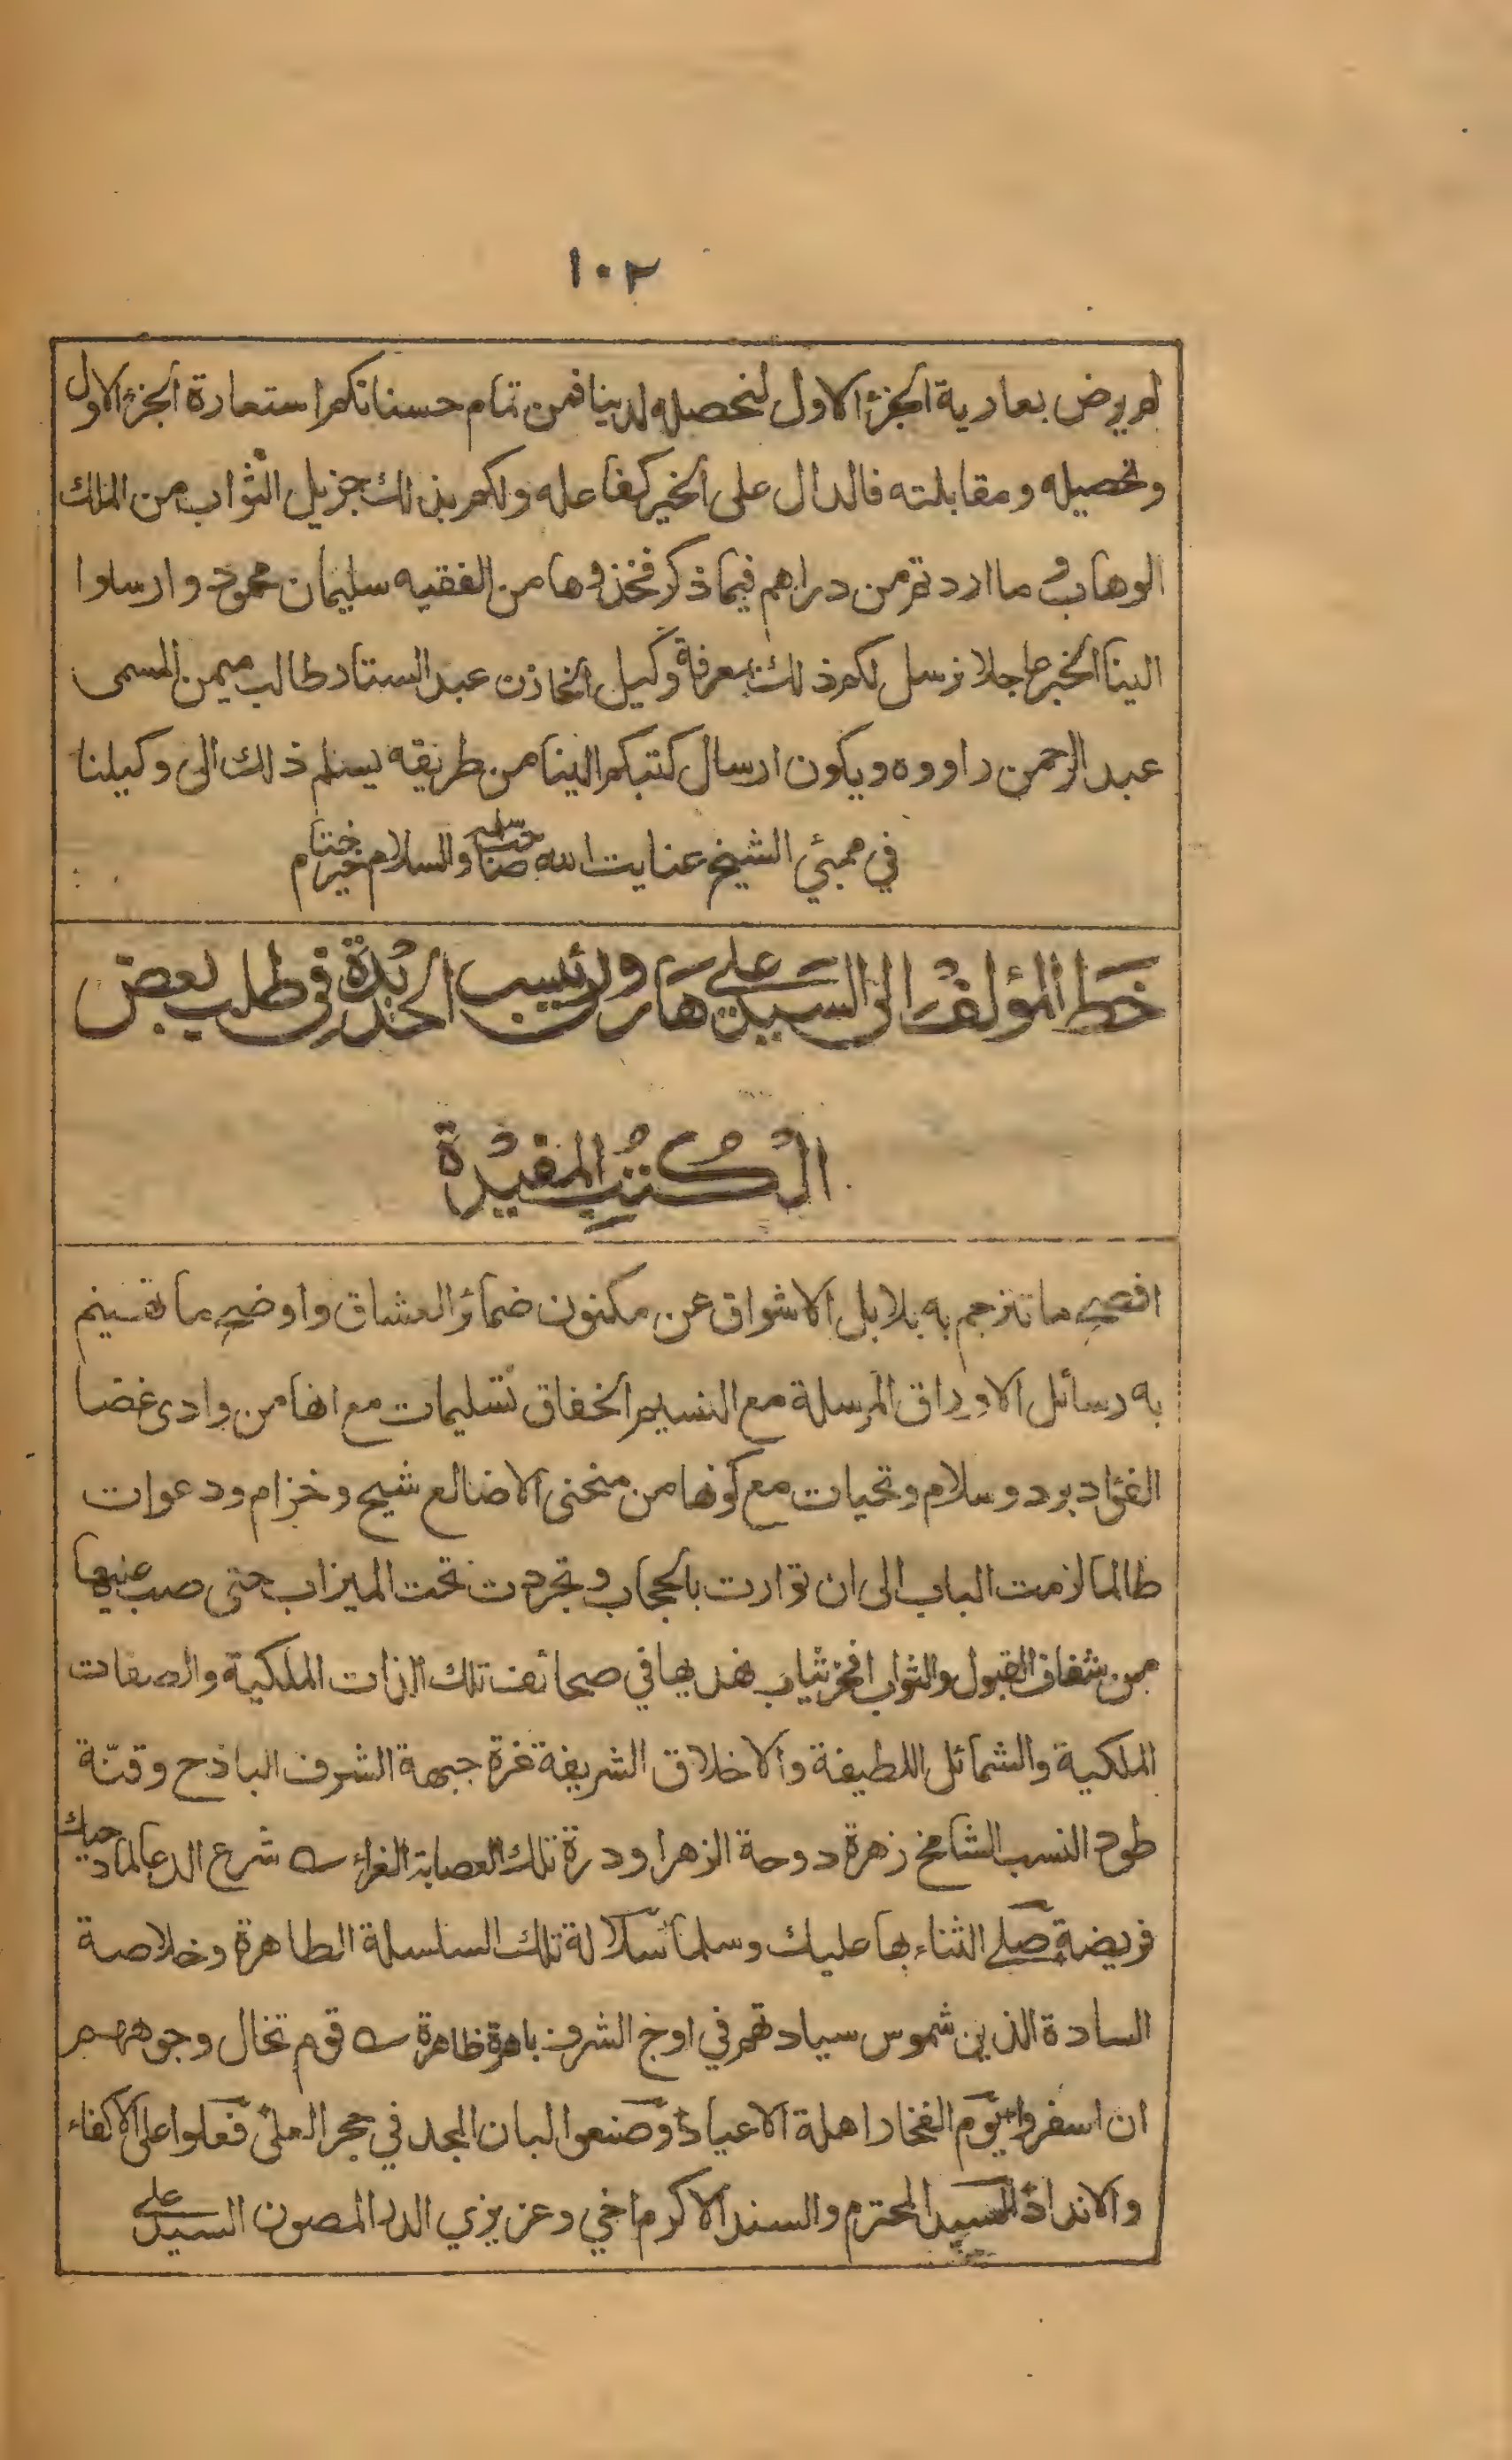 ١٠٢
لم يرض بعارية الجزء الاول لنحصله لدينا فمن تمام حسناتكم استعارة الجزء الاول
وتحصيله ومقابلته فالدال على الخير كفاعله ولكم بذلك جزيل الثواب من الملك
الوهاب وما اردتم من دراهم فيما ذكر فخذوها من الفقيه سليمان محمود وارسلوا
الينا الخبر عاجلا نرسل لكم ذلك بمعرفة وكيل الخازن عبد الستار طالب ميمن المسمى
عبد الرحمن راووه ويكون ارسال كتبكم الينا من طريقه يسلم ذلك الى وكيلنا
في ممبئي الشيخ عنايت الله صاحب سلمه والسلام خير ختام
خط المؤلف الى السيد علي هارون رئيس الحديدة في طلب بعض
الكتب المفيدة
افصح ما تترجم به بلابل الاشواق عن مكنون ضمائر العشاق واوضح ما تسنيم
به رسائل الاوراق المرسلة مع النسيم الخفاق تسليمات مع انها من وادى غضا
الفؤاد برد وسلام وتحيات مع كونها من منحنى الاضالع شيح وخزام ودعوات
طالما لازمت الباب الى ان توارت بالحجاب وتجردت تحت الميزاب حتى صب عليها
من شفاف القبول والثواب افخر ثياب نهديها في صحائف تلك الذات الملكية والصفات
الملكية والشمائل اللطيفة والاخلاق الشريفة غرة جبهة الشرف الباذح وقنّة
طود النسب الشامخ زهرة دوحة الزهرا ودرة تلك العصابة الغراء شرع الدعا لماديك
فريضة صلى الثناء بها عليك وسلما سلالة تلك السلسلة الطاهرة وخلاصة
السادة الذين شموس سيادتهم في اوج الشرف باهرة ظاهرة قوم تخال وجوههم
ان اسفروا يوم الفخار اهلة الاعياد وصنعوا لبان المجد في حجر العلى فعلوا على الاكفاء
والانداد السيد المحترم والسند الاكرم اخي وعزيزي الدر المصون السيد علي